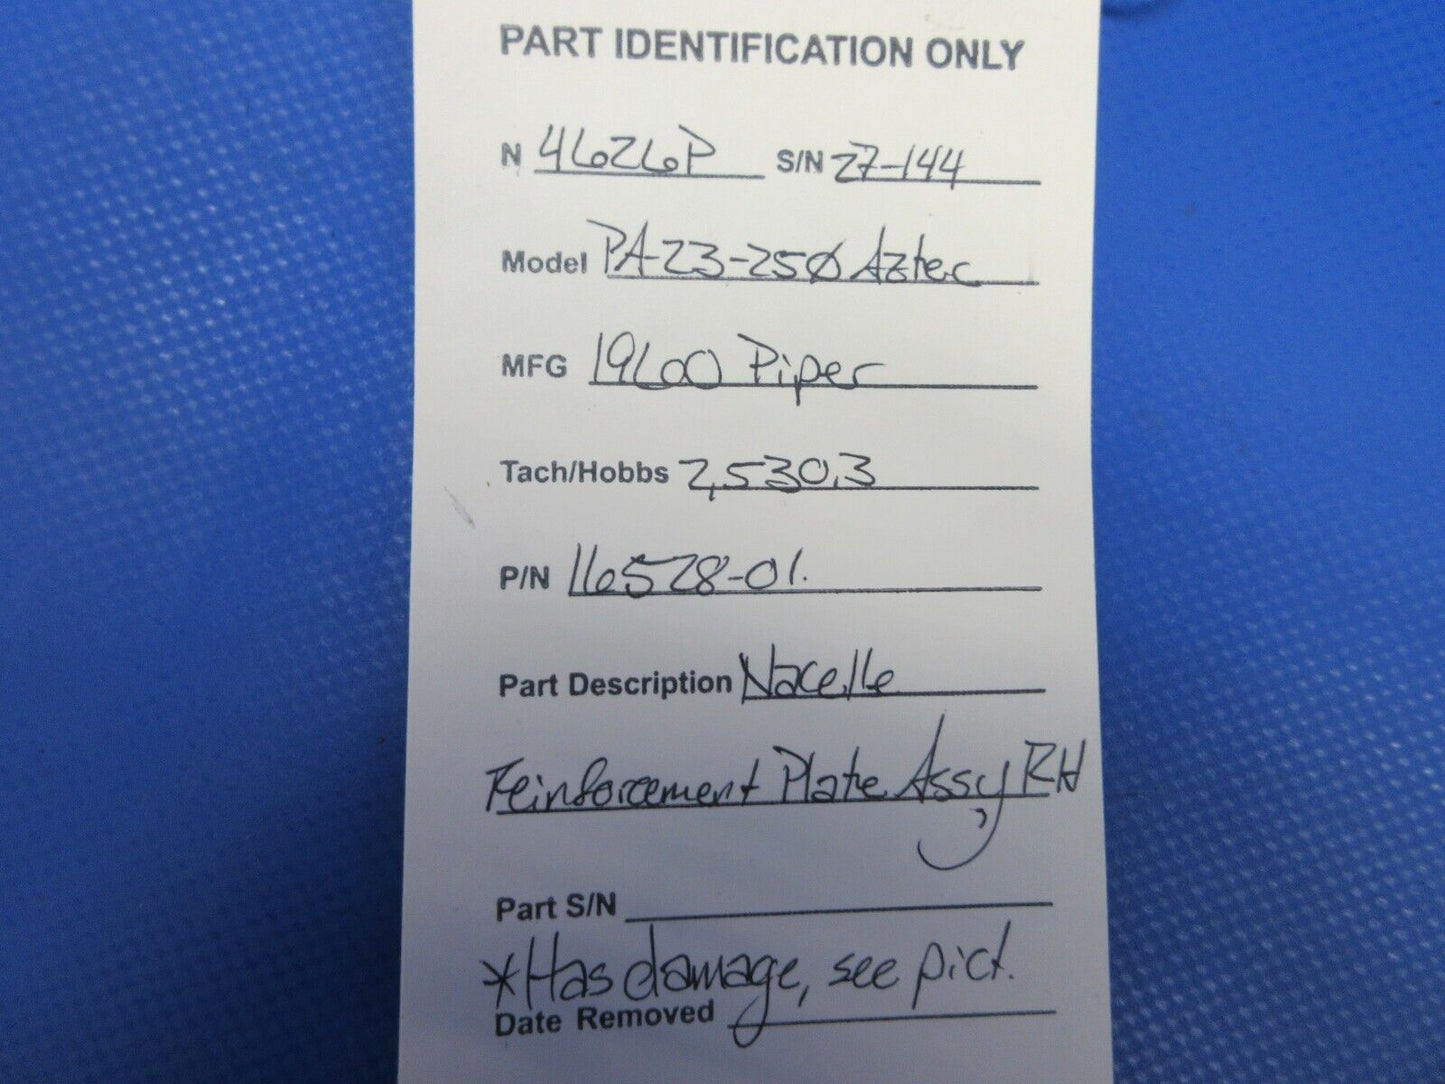 PART IDENTIFICATION ONLY
N 4626P S/N 27-144
Model PA-23-250 Aztec
MFG 1960 Piper
Tach/Hobbs 2,530.3
P/N 16528-01.
Part Description Nacelle
reinforcement Plate Assy, RH
Part S/N
*Has damage, see pict.
Date Removed